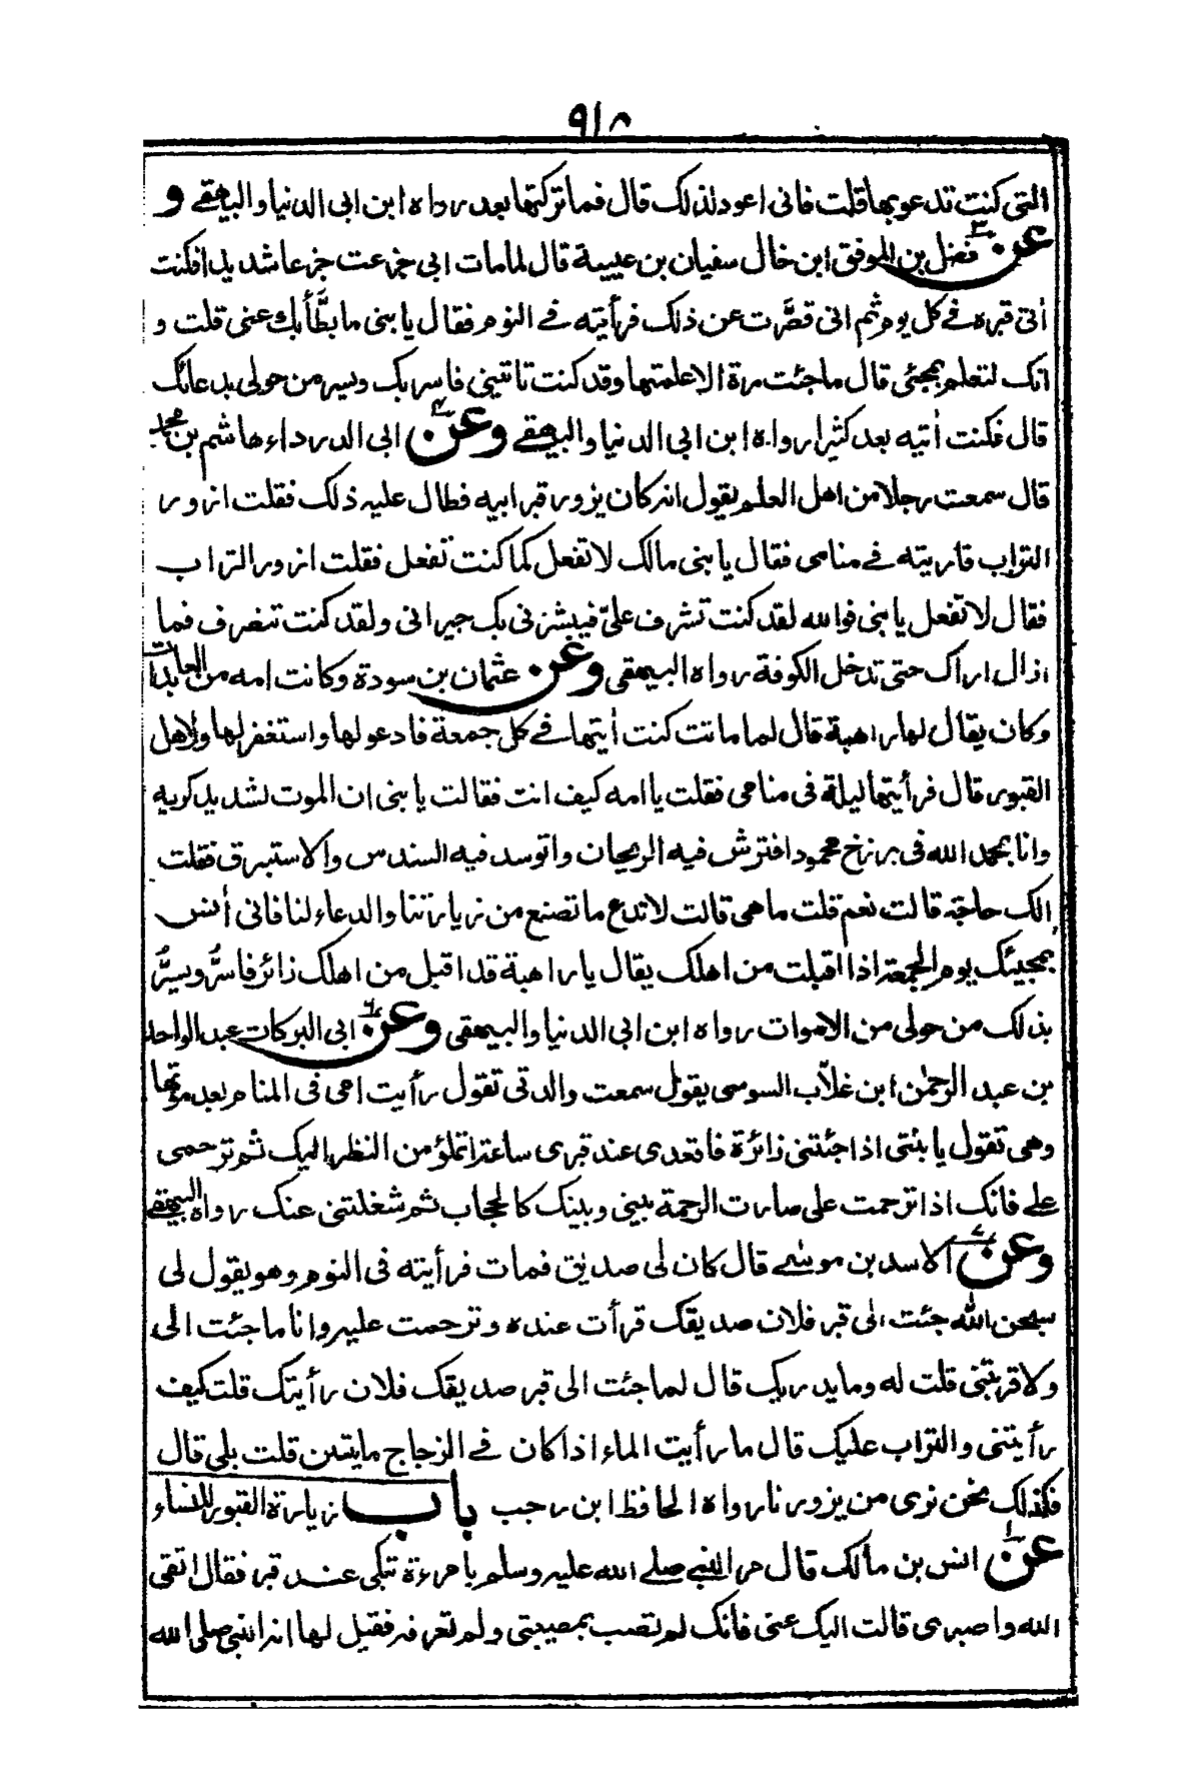 ٩١٨
التی کنیت تدعوبها قلت فانی اعود لذلک قال فما ترکتها بعد رداه ابن ابی الدنیا والبیهقے و
عن ٣ فضل بن الموفق ابن خال سفیان بن عیینة قال لما مات ابی جزعت جزعا شدیدا فکنت
اٰتی قبره فے کل یوم ثم انی قصَّرت عن ذلک فرأیته فے النوم فقال یا بنی ما بطَّأ بک عنی قلت و
انک لتعلم بمجئی قال ما جئت مرة الا علمتها وقد کنت تاتینی فاسر بک ویسر من حولی بدعائک
قال فکنت اٰتیه بعد کثیرا رواه ابن ابی الدنیا والبیهقے وعن ٤ ابی الدرداء هاشم بن محمد
قال سمعت رجلا من اهل العلم یقول انه کان یزور قبر ابیه فطال علیه ذلک فقلت ازور
التراب فاریته فے منامی فقال یا بنی مالک لا تفعل کما کنت تفعل فقلت ازور التراب
فقال لا تفعل یا بنی فوالله لقد کنت تشرف علیّ فیبشرنی بک جیرانی ولقد کنت تنصرف فما
ازال اراک حتی تدخل الکوفة رواه البیهقی وعن عثمان بن سودة وکانت امه من العابدات
وکان یقال لها راهبة قال لما ماتت کنت اٰتیها فے کل جمعة فادعو لها واستغفر لها ولاهل
القبور قال فرأیتها لیلة فی منامی فقلت یا امه کیف انت فقالت یا بنی ان الموت لشدید کربه
وانا بحمد الله فی برزخ محمود افترش فیه الریحان واتوسد فیه السندس والاستبرق فقلت
الک حاجة قالت نعم قلت ما هی قالت لا تدع ما تصنع من زیارتنا والدعاء لنا فانی اٰنس
بمجیئک یوم الجمعة اذا اقبلت من اهلک یقال یا راهبة قد اقبل من اهلک زائر فاسرُّ ویسرُّ
بذلک من حولی من الاموات رواه ابن ابی الدنیا والبیهقی وعن ٦ ابی البرکات عبد الواحد
بن عبد الرحمٰن ابن غلاّب السوسی یقول سمعت والدتی تقول رأیت امی فی المنام بعد موتها
وهی تقول یا بنتی اذا جئتنی زائرة فاقعدی عند قبری ساعة اتملؤ من النظر الیک ثم ترحمی
علے فانک اذا ترحمت علی صارت الرحمة بینی وبینک کالحجاب ثم شغلتنی عنک رواه البیهقے
وعن ٧ الاسد بن موسٰے قال کان لی صدیق فمات فرأیته فی النوم وهو یقول لی
سبحن الله جئت الٰی قبر فلان صدیقک قرأت عنده وترحمت علیه وانا ما جئت الی
ولا قربتنی قلت له وما یدریک قال لما جئت الی قبر صدیقک فلان رأیتک قلت کیف
رأیتنی والتراب علیک قال ما رأیت الماء اذا کان فے الزجاج ما یتبین قلت بلی قال
فکذلک نحن نری من یزورنا رواه الحافظ ابن رجب باب زیارة القبور للنساء
عن ١ انس بن مالک قال مر النبی صلے الله علیه وسلم بامرءة تبکی عند قبر فقال اتقی
الله واصبری قالت الیک عنی فانک لم تصب بمصیبتی ولم تعرفه فقیل لها انه النبی صلی الله